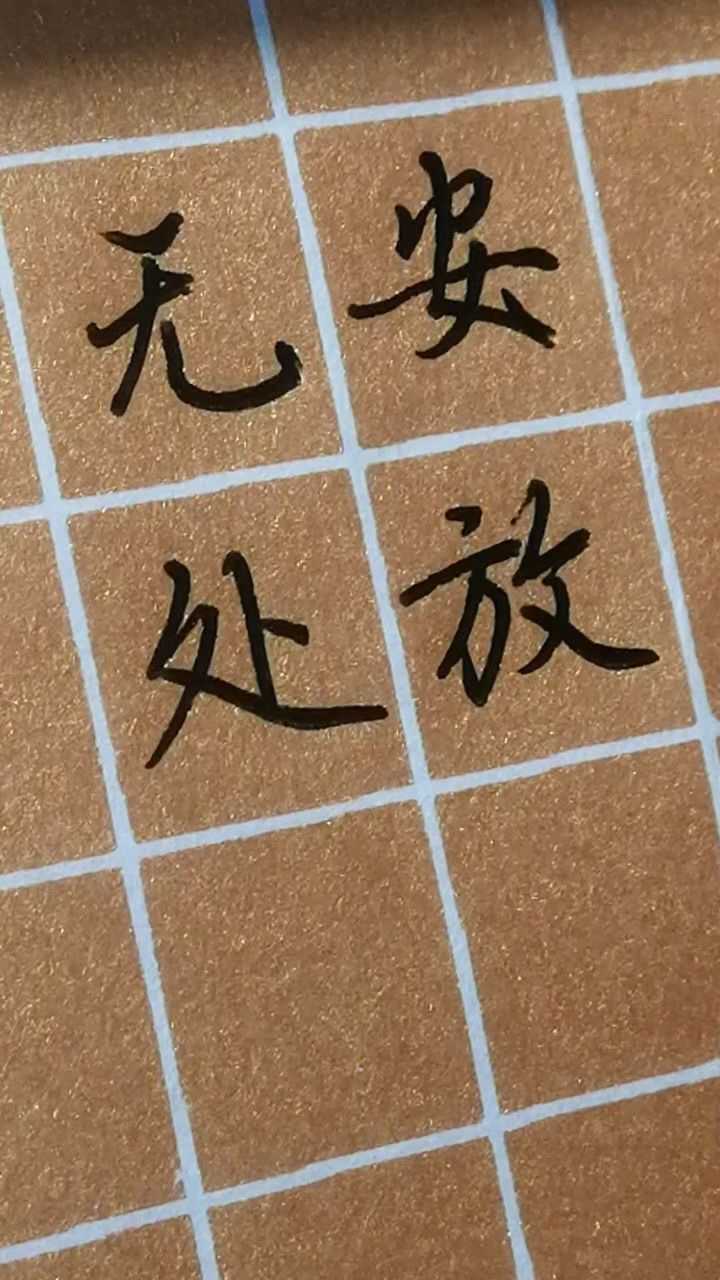 无处
安放